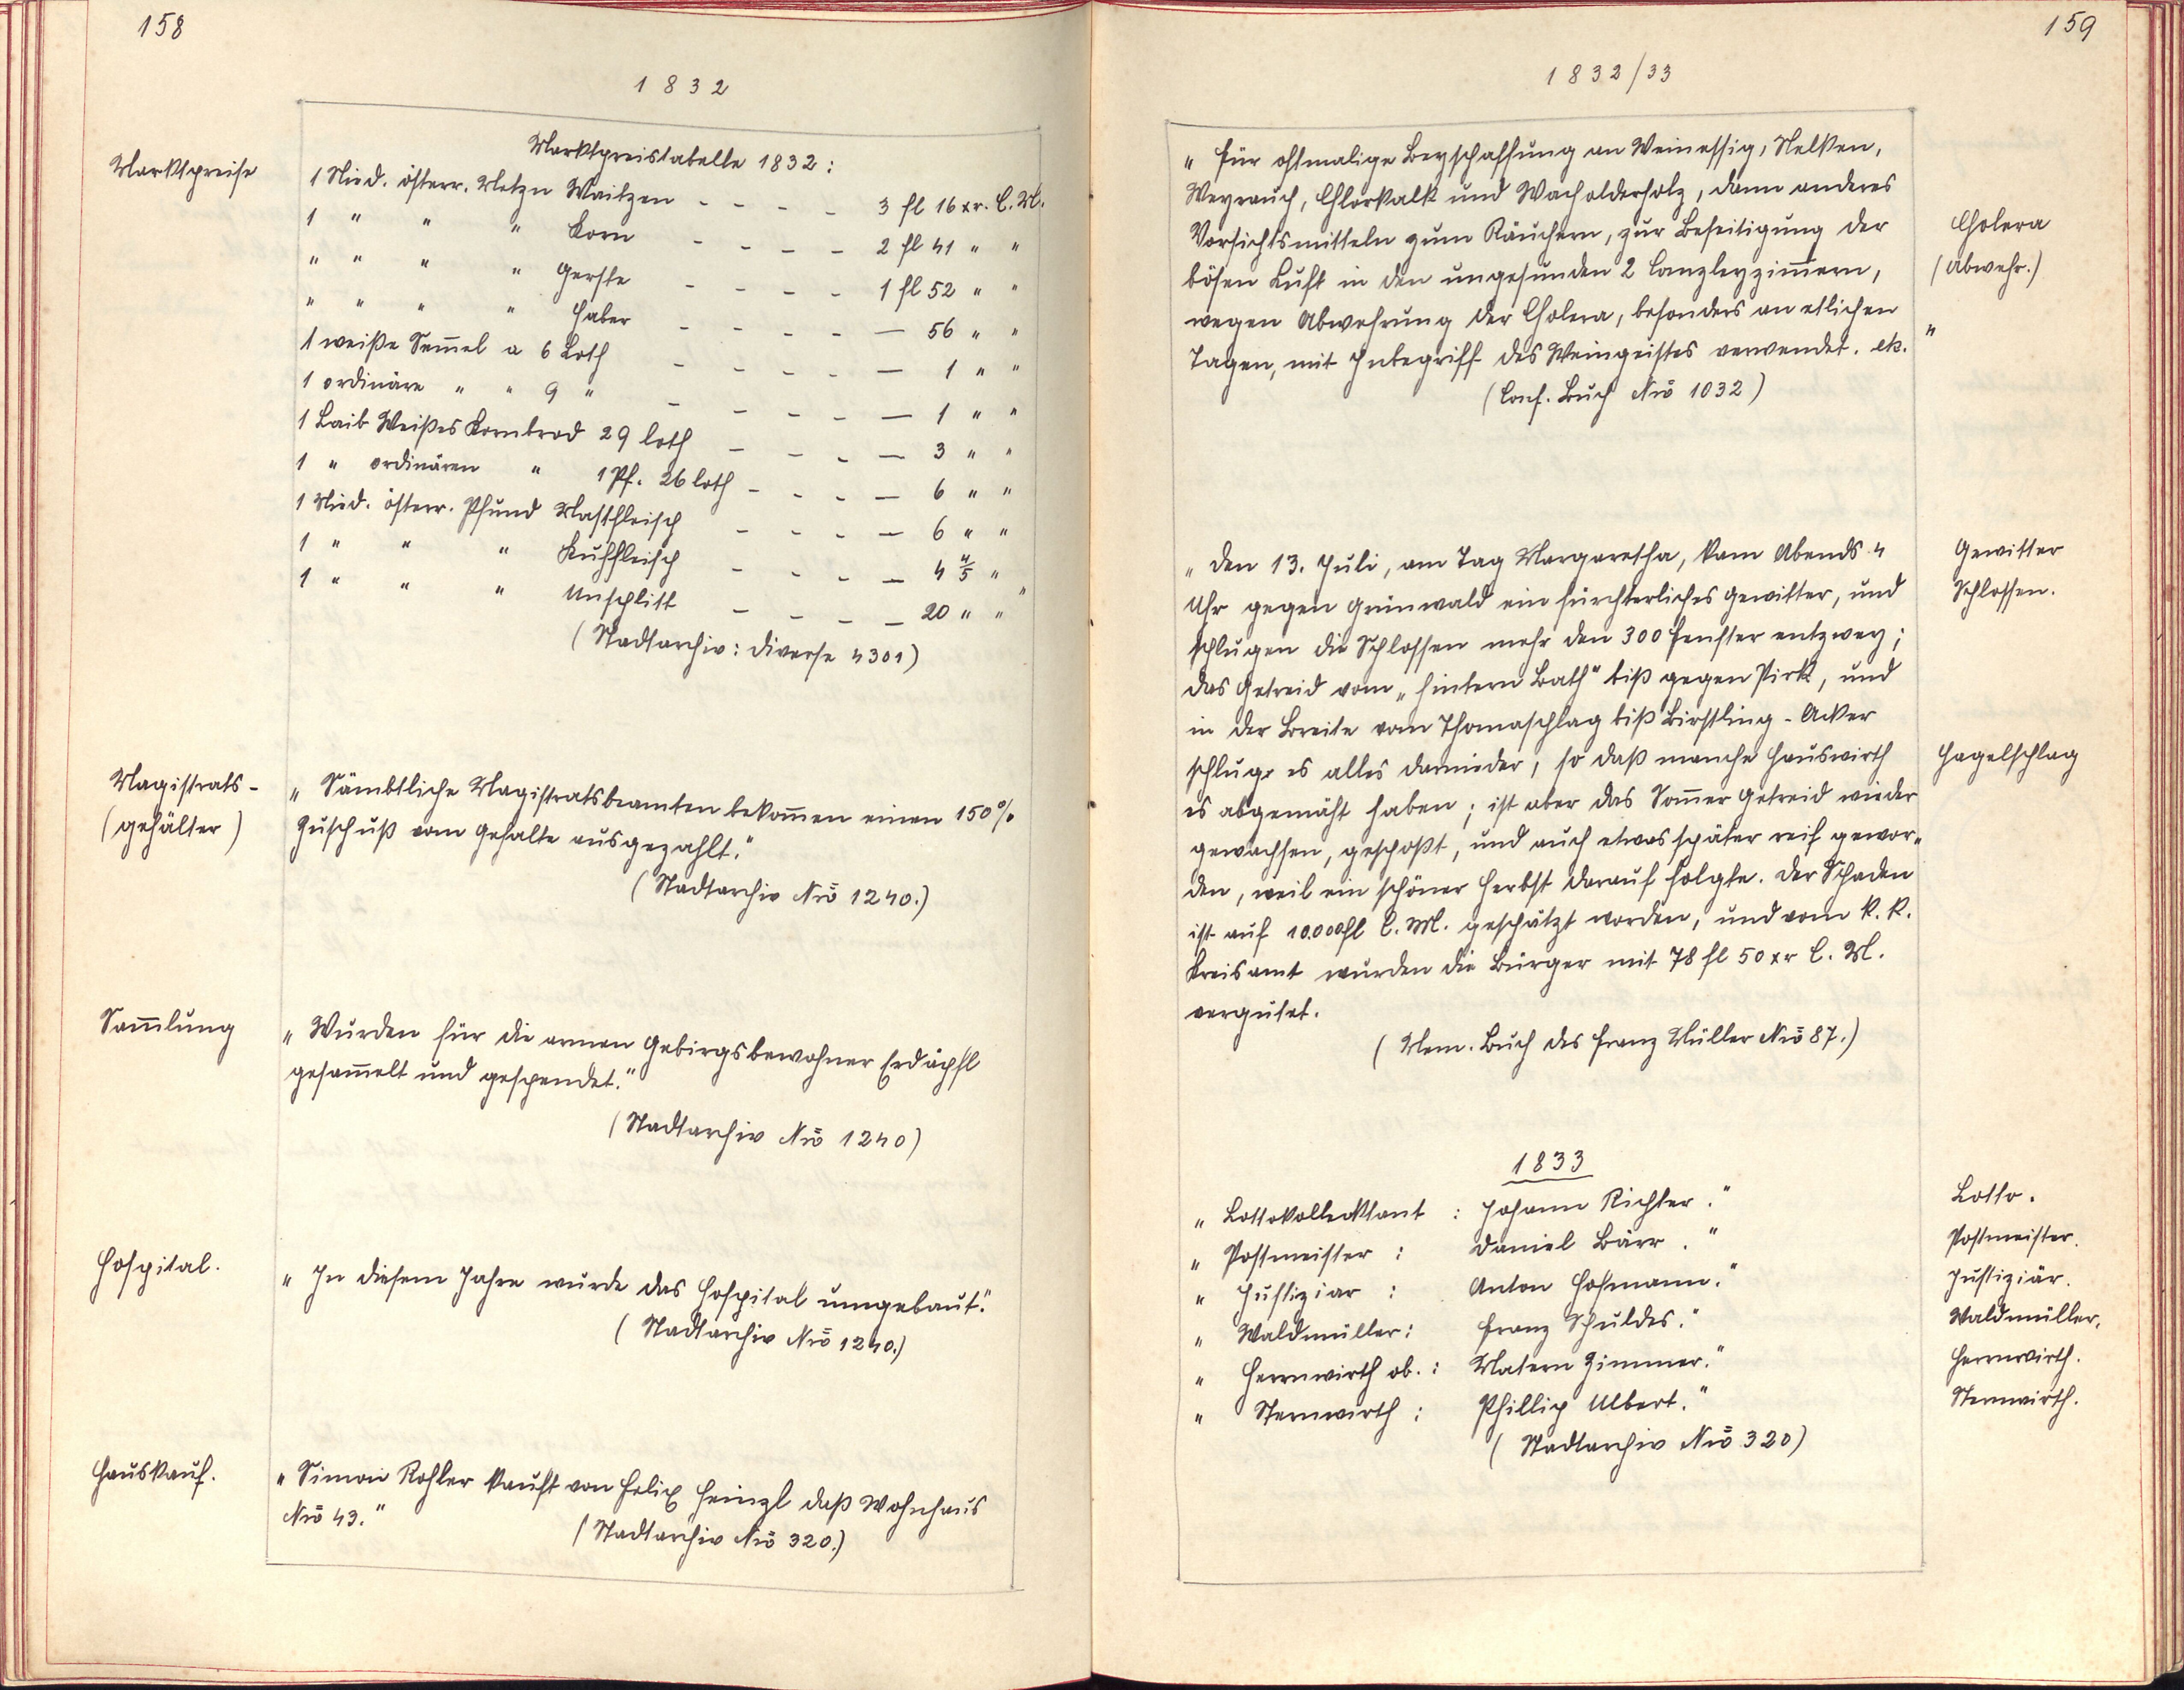 158
1832
Marktpreise
Marktpreistabelle 1832:
1 Nied. österr. Metzn Waitzen - - - - 3 fl 16 xr. C. M.
1 " " " Korn - - - - 2 fl 41 " "
" " " " Gerste - - - - 1 fl 52 " "
" " " " Haber - - - - — 56 " "
1 weiße Sem̄el a 6 Loth - - - - — 1 " "
1 ordinäre " " 9 " - - - - — 1 " "
1 Laib Weißes Kornbrod 29 loth - - - — 3 " "
1 " ordinären " 1 Pf. 26 loth - - - — 6 " "
1 Nied. österr. Pfund Mastfleisch - - - — 6 " "
1 " " " Kuhfleisch - - - — 4 4/5 " "
1 " " " Unschlitt - - - — 20 " "
(Stadtarchiv: Diverse 4301)
Magistrats-
(gehälter)
„Sämbtliche Magistratsbeamten bekom̄en einen 150%
Zuschuß vom Gehalte ausgezahlt."
(Stadtarchiv Nrō 1240.)
Sam̄lung
„Wurden für die armen Gebirgsbewohner Erdäpfl
gesam̄elt und gespendet."
(Stadtarchiv Nrō 1240)
Hospital.
„In diesem Jahre wurde das Hospital umgebaut."
(Stadtarchiv Nrō 1240.)
Hauskauf.
„Simon Kohler kauft von Felix Heinzl daß Wohnhaus
Nrō 43."
(Stadtarchiv Nrō 320.)
159
1832/33
„Für oftmalige Beyschaffung an Weinessig, Nelken,
Weyrauch, Chlorkalk und Wacholderholz, dann anderes
Vorsichtsmitteln zum Räuchern, zur Beseitigung der
bösen Luft in den ungesunden 2 Canzleyzim̄ern,
wegen Abwehrung der Cholera, besonders an etlichen
Tagen, mit Inbegriff des Weingeistes verwendet. etc."
(Conf. Buch Nrō 1032)
Cholera
(Abwehr.)
„Den 13. Juli, am Tag Margaretha, kam Abends 4
Uhr gegen Grünwald ein fürchterliches Gewitter, und
schlugen die Schlossen mehr den 300 Fenster entzwey;
das Getreid vom „hintern Bath" biß gegen Pirk, und
in der Breite vom Thomaschlag biß Birstling-Acker
schluge es alles darnieder, so daß manche Hauswirth
es abgemäht haben; ist aber das Som̄er Getreid wieder
gewachsen, geschoßt, und auch etwas später reif gewor-
den, weil ein schöner Herbst darauf folgte. Der Schaden
ist auf 10.000 fl C. M. geschätzt worden, und vom k. k.
Kreisamt wurden die Bürger mit 78 fl 50 xr C. M.
vergütet.
(Mem. Buch des Franz Müller Nrō 87.)
Gewitter
Schlossen.
Hagelschlag
1833
„Lottokollecktant: Johann Richter."
„Postmeister: Daniel Bärr."
„Justiziar: Anton Hofmann."
„Waldmüller: Franz Schuldes."
„Herrnwirth ob.: Matern Zimmer."
„Sternwirth: Phillip Ulbert."
(Stadtarchiv Nrō 320)
Lotto.
Postmeister.
Justiziär.
Waldmüller.
Herrnwirth.
Sternwirth.